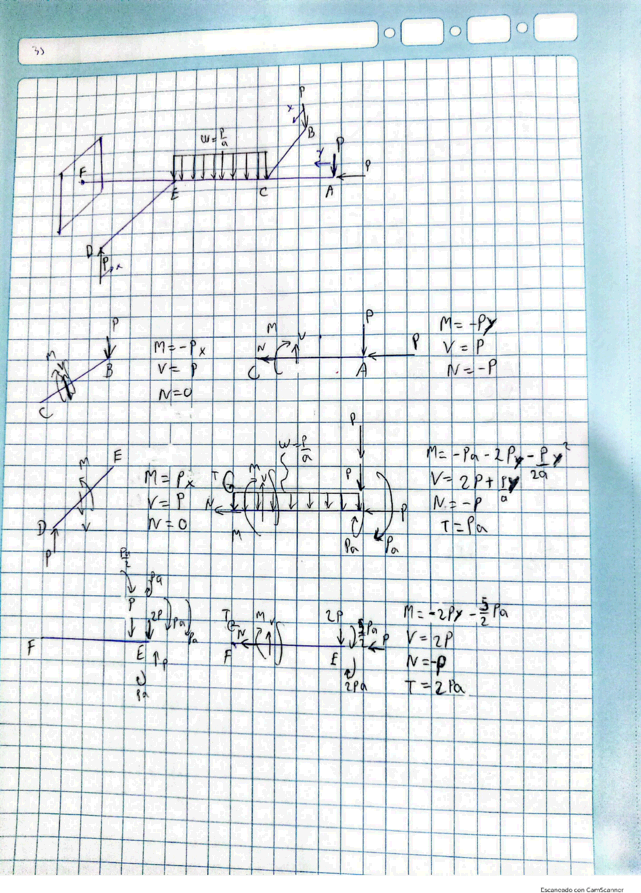 33
P
x
B
w = P/a
P
y
P
F
E
C
A
D
P
x
P
M
V
B
C
M = -Px
V = P
N = 0
P
M
V
N
P
C
A
M = -Py
V = P
N = -P
E
M
D
V
P
M = Px
V = P
N = 0
P
w = P/a
P
T
M
V
N
P
M
Pa
Pa
M = -Pa - 2Py - P/2a y²
V = 2P + Py/a
N = -P
T = Pa
Pa/2
Pa
P
2P
Pa
Pa
F
E
P
Pa
T
M
V
N
F
2P
5/2 Pa
P
E
2Pa
M = -2Py - 5/2 Pa
V = 2P
N = -P
T = 2Pa
Escaneado con CamScanner